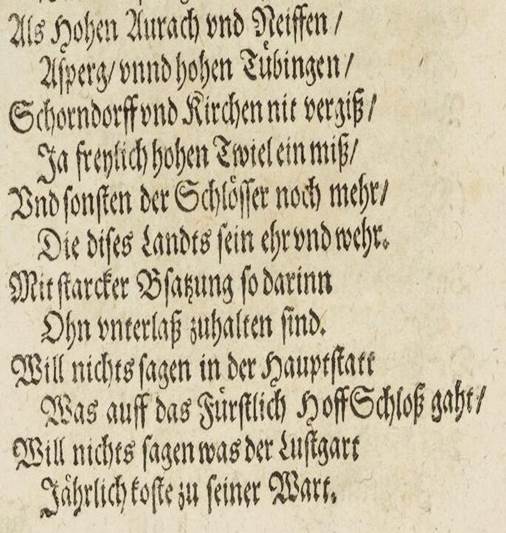 Als Hohen Aurach vnd Neiffen /
Asperg / vnnd hohen Tübingen /
Schorndorff vnd Kirchen nit vergiß /
Ja freylich hohen Twiel ein miß /
Vnd sonsten der Schlösser noch mehr /
Die dises Landts sein ehr vnd wehr.
Mit starcker Bsatzung so darinn
Ohn vnterlaß zuhalten sind.
Will nichts sagen in der Hauptstatt
Was auff das Fürstlich Hoff Schloß gaht /
Will nichts sagen was der Lustgart
Jährlich koste zu seiner Wart.